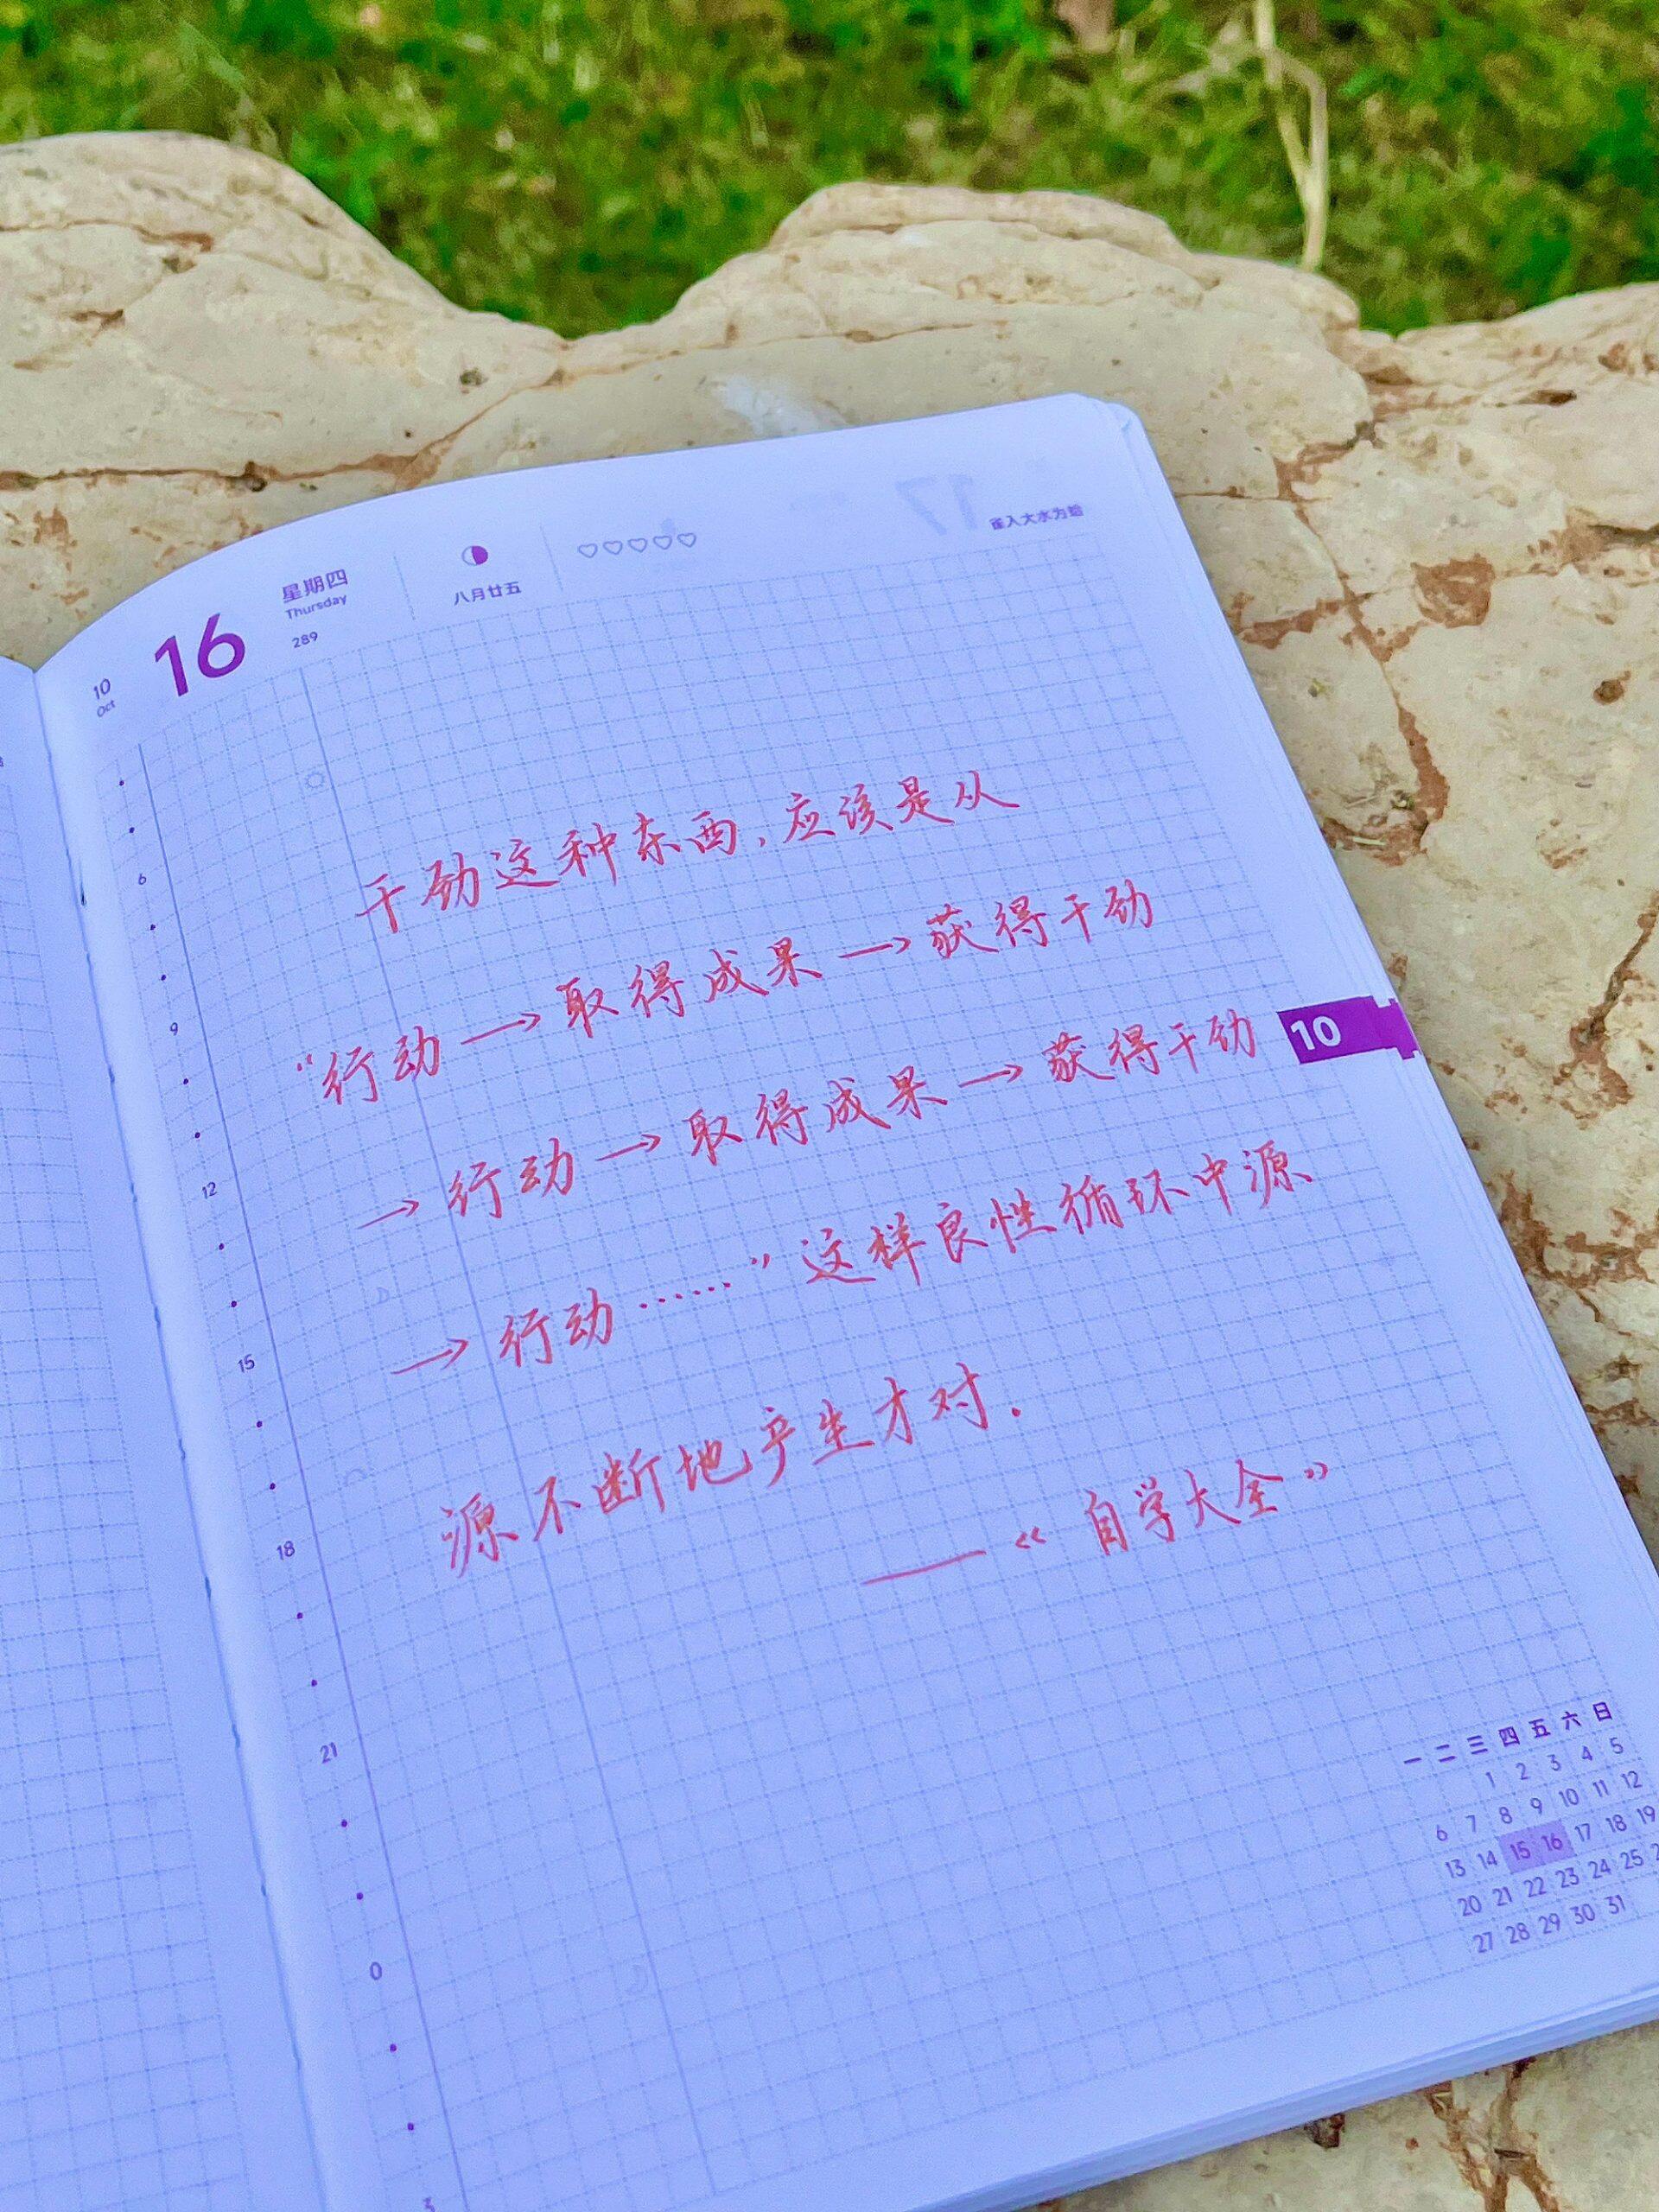 10
Oct
16
星期四
Thursday
289
八月廿五
17
雀入大水为蛤
干劲这种东西，应该是从
“行动→取得成果→获得干劲
→行动→取得成果→获得干劲
→行动……”这样良性循环中源
源不断地产生才对．
——《自学大全》
10
6
9
12
15
18
21
0
3
一 二 三 四 五 六 日
1 2 3 4 5
6 7 8 9 10 11 12
13 14 15 16 17 18 19
20 21 22 23 24 25
27 28 29 30 31